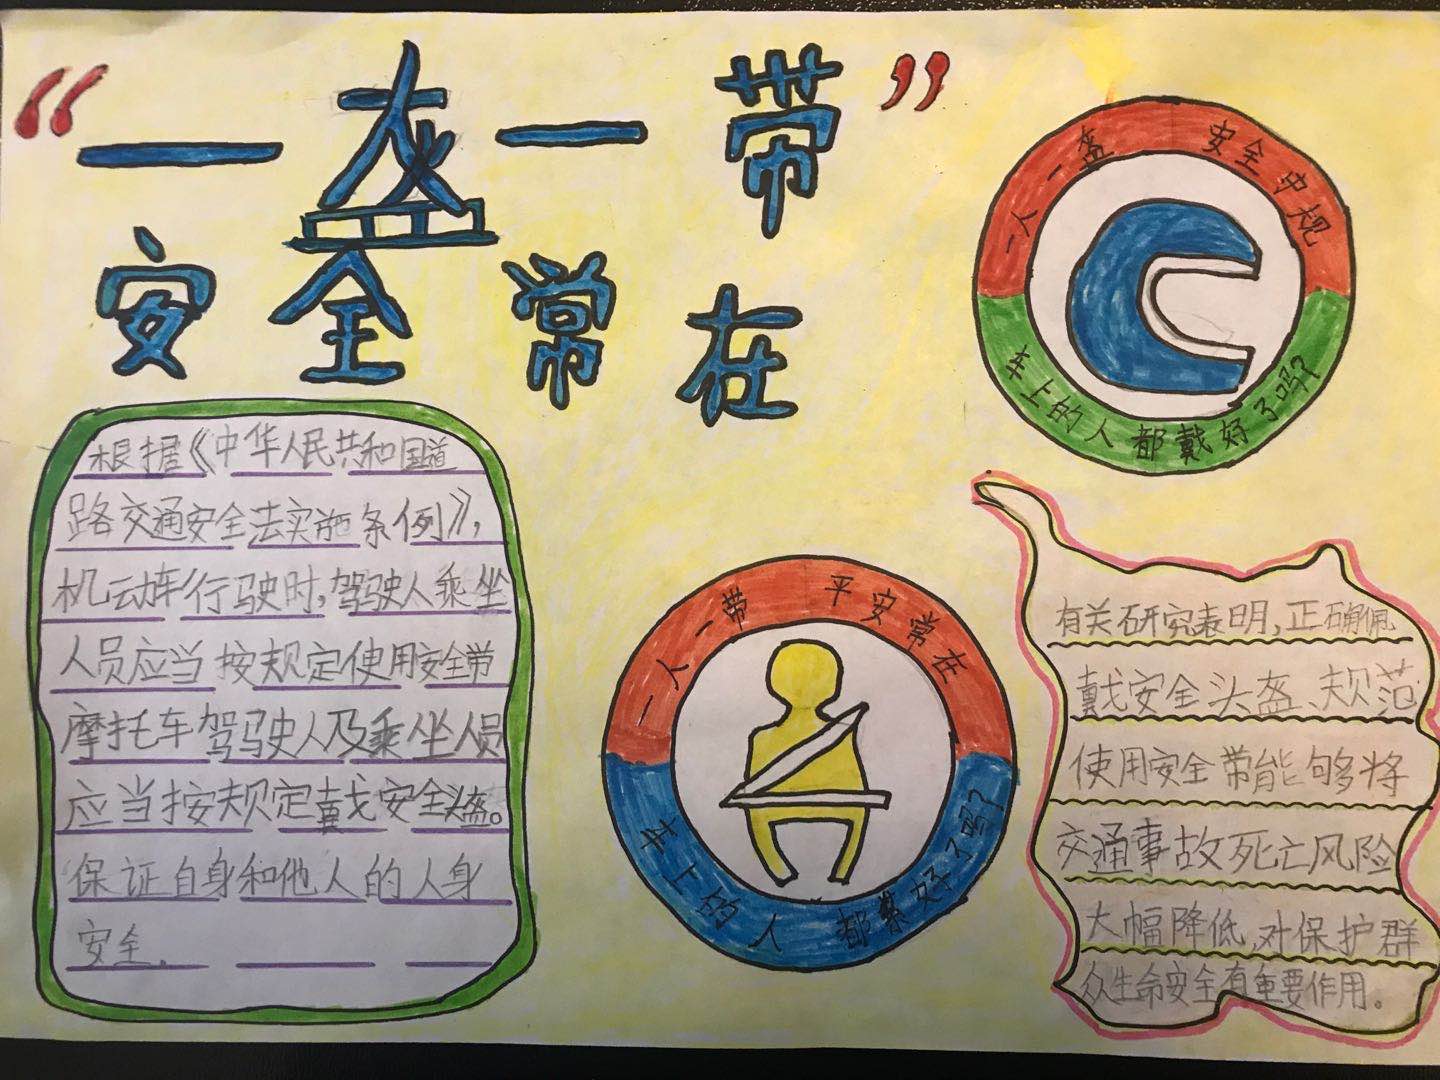 “一盔一带”
安全常在
一人一盔 安全中规
车上的人都戴好了吗?
根据《中华人民共和国道
路交通安全法实施条例》,
机动车行驶时,驾驶人乘坐
人员应当按规定使用安全带
摩托车驾驶人及乘坐人员
应当按规定戴安全头盔。
保证自身和他人的人身
安全.
一人一带 平安常在
车上的人都系好了吗?
有关研究表明,正确佩
戴安全头盔、规范
使用安全带能够将
交通事故死亡风险
大幅降低,对保护群
众生命安全有重要作用。